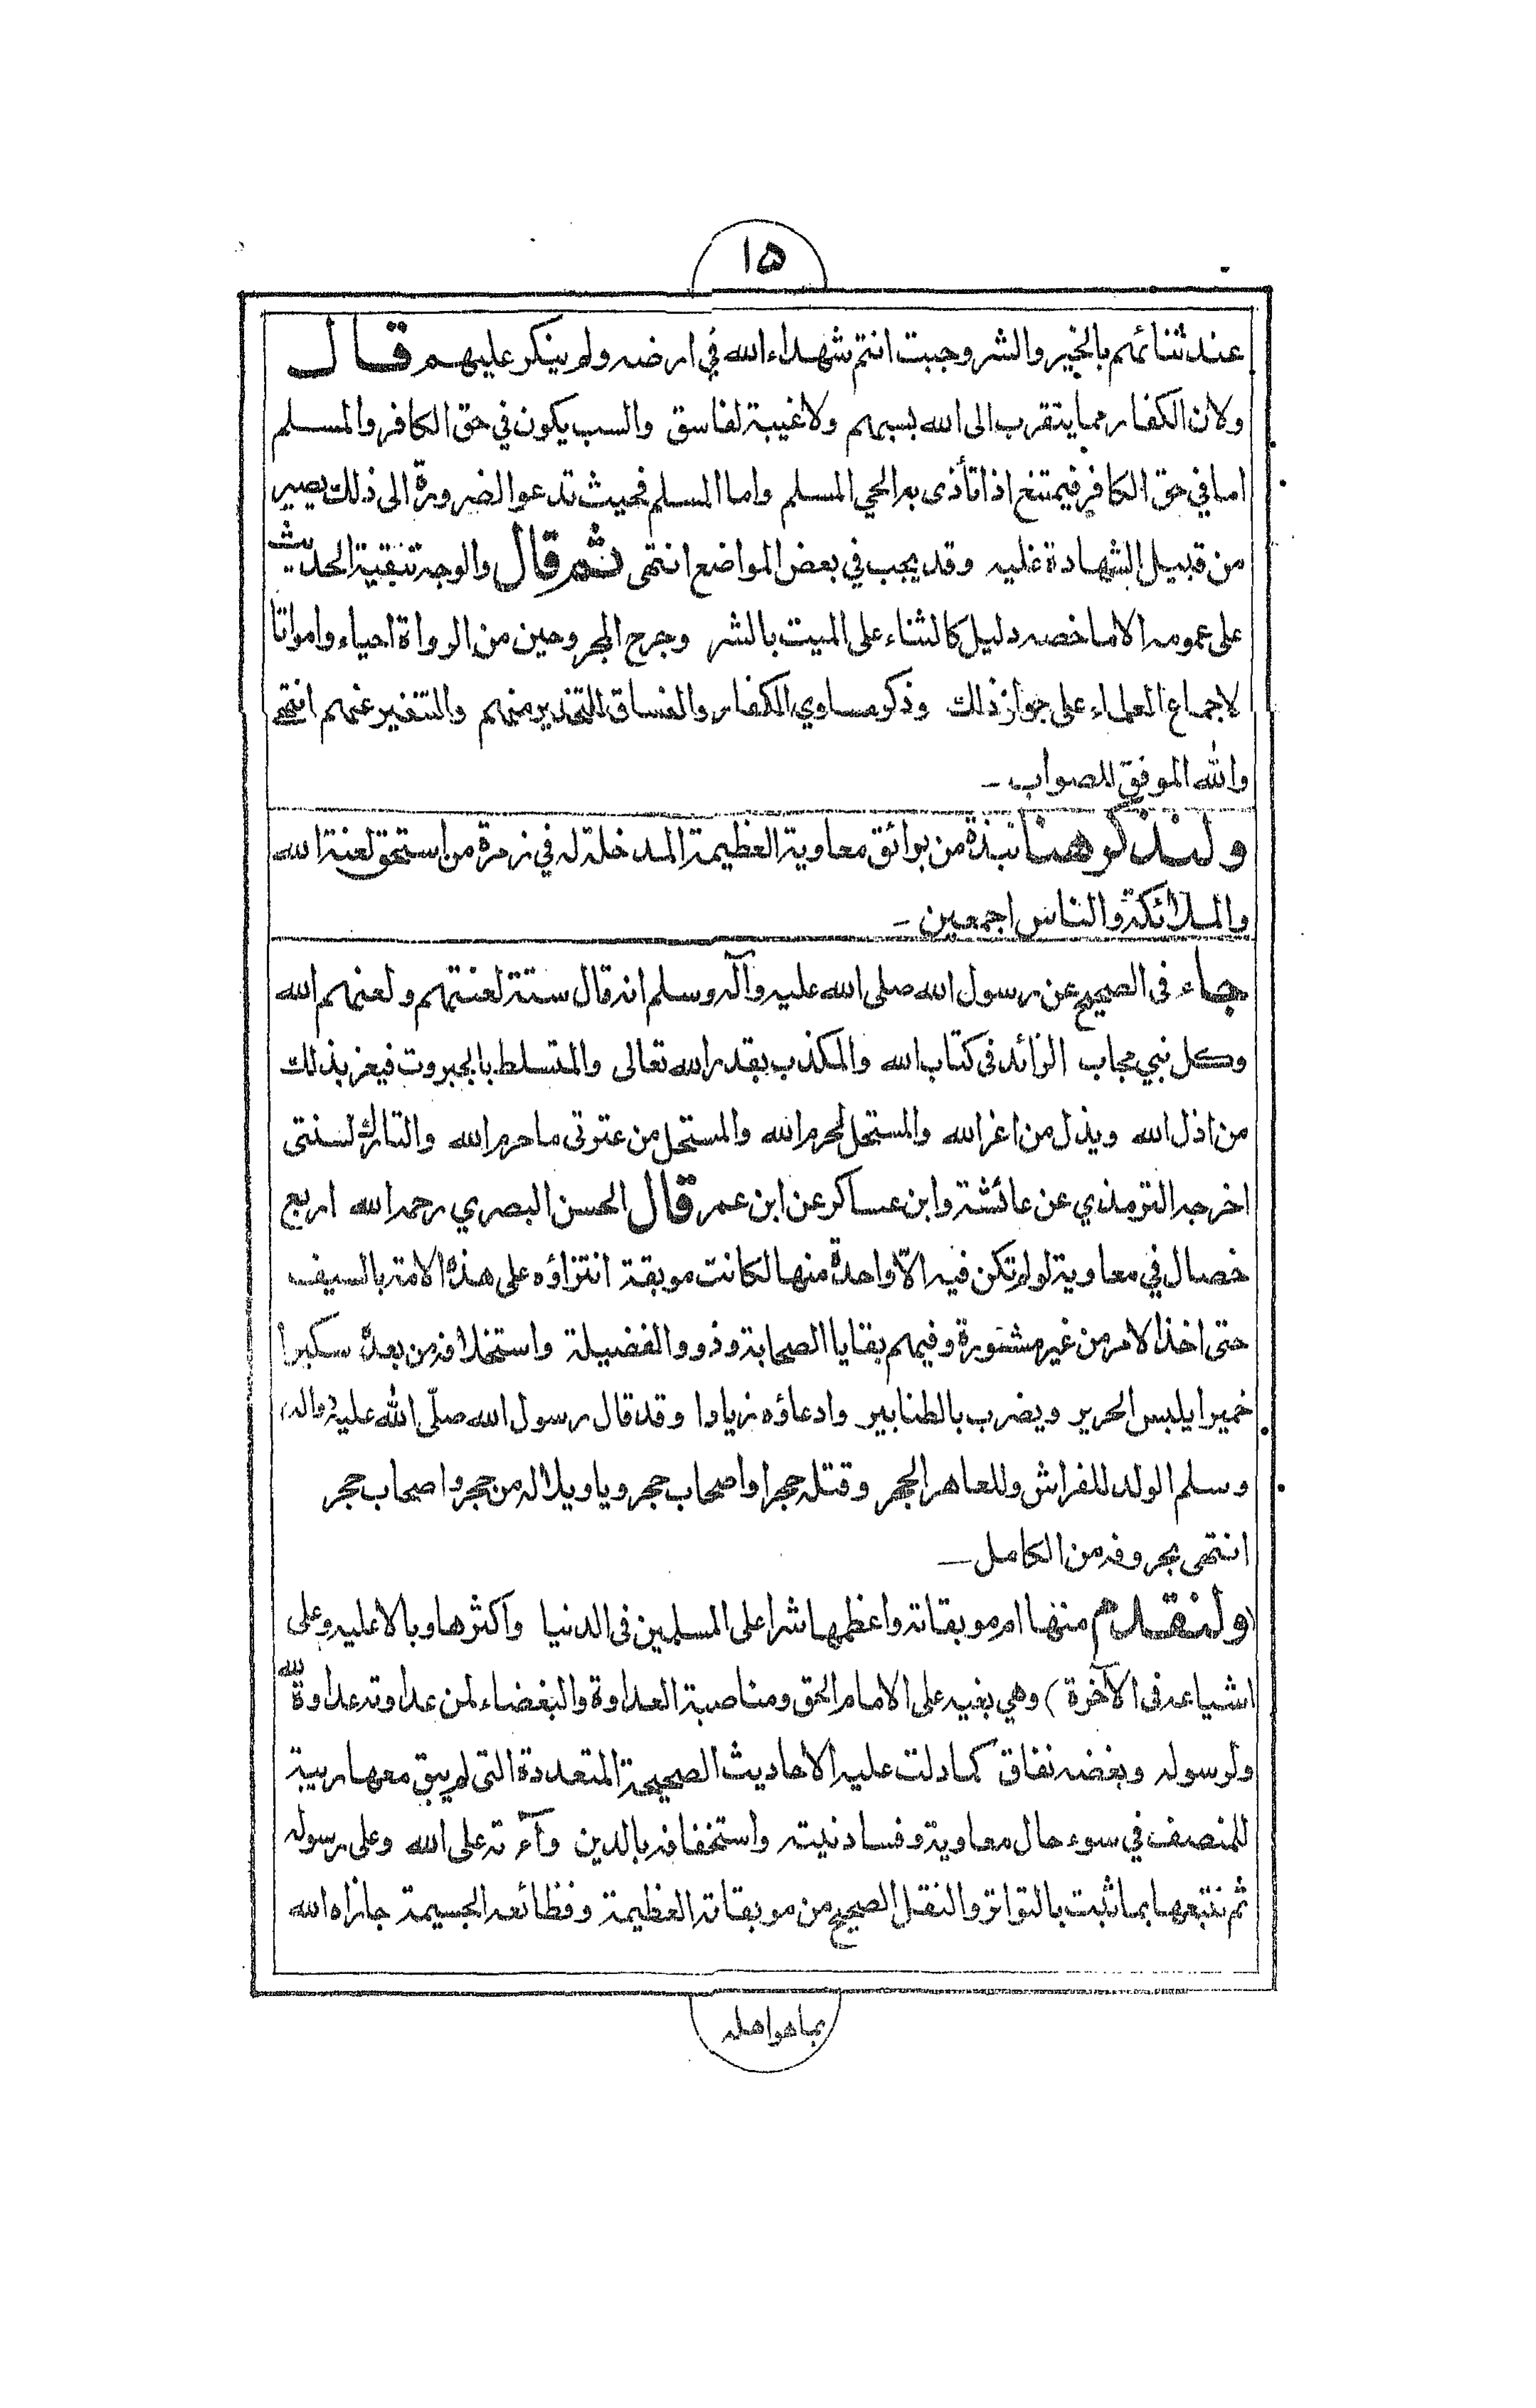 ١٥
عند ثنائهم بالخير والشر وجبت انتم شهداء الله في ارضه ولم ينكر عليهم قال
ولان الكفار مما يتقرب الى الله بسبهم ولا غيبة لفاسق والسب يكون في حق الكافر والمسلم
اما في حق الكافر فيمتنع اذا تأذى به الحي المسلم واما المسلم فحيث تدعو الضرورة الى ذلك يصير
من قبيل الشهادة عليه وقد يجب في بعض المواضع انتهى ثم قال والوجه تبقية الحديث
على عمومه الا ما خصه دليل كالثناء على الميت بالشر وجرح المجروحين من الرواة احياء وامواتا
لاجماع العلماء على جواز ذلك وذكر مساوي الكفار والفساق للتحذير منهم والتنفير عنهم انتهى
والله الموفق للصواب -
ولنذكر هنا نبذة من بوائق معاوية العظيمة المدخلة له في زمرة من استحق لعنة الله
والملائكة والناس اجمعين -
جاء فى الصحيح عن رسول الله صلى الله عليه وآله وسلم انه قال ستة لعنتهم ولعنهم الله
وكل نبي مجاب الزائد فى كتاب الله والمكذب بقدر الله تعالى والمتسلط بالجبروت فيعز بذلك
من اذل الله ويذل من اعز الله والمستحل لحرم الله والمستحل من عترتى ما حرم الله والتارك لسنتى
اخرجه الترمذي عن عائشة وابن عساكر عن ابن عمر قال الحسن البصري رحمه الله اربع
خصال في معاوية لو لم تكن فيه الّا واحدة منها لكانت موبقة انتزاؤه على هذه الامة بالسيف
حتى اخذ الامر من غير مشورة وفيهم بقايا الصحابة وذوو الفضيلة واستخلافه من بعده سكيرا
خميرا يلبس الحرير ويضرب بالطنابير وادعاؤه زيادا وقد قال رسول الله صلّى الله عليه (واله)
وسلم الولد للفراش وللعاهر الحجر وقتله حجرا واصحاب حجر ويا ويلا له من حجر واصحاب حجر
انتهى بحروفه من الكامل -
(ولنقدم منها ام موبقاته واعظمها شرا على المسلمين فى الدنيا واكثرها وبالا عليه وعلى
اشياعه فى الآخرة) وهي بغيه على الامام الحق ومناصبة العداوة والبغضاء لمن عداوته عداوة لله
ولرسوله وبغضه نفاق كما دلت عليه الاحاديث الصحيحة المتعددة التى لم يبق معها ريبة
للمنصف في سوء حال معاوية وفساد نيته واستخفافه بالدين على الله وعلى رسوله
ثم نتبعها بما ثبت بالتواتر والنقل الصحيح من موبقاته العظيمة وفظائعه الجسيمة جازاه الله
بما هو اهله